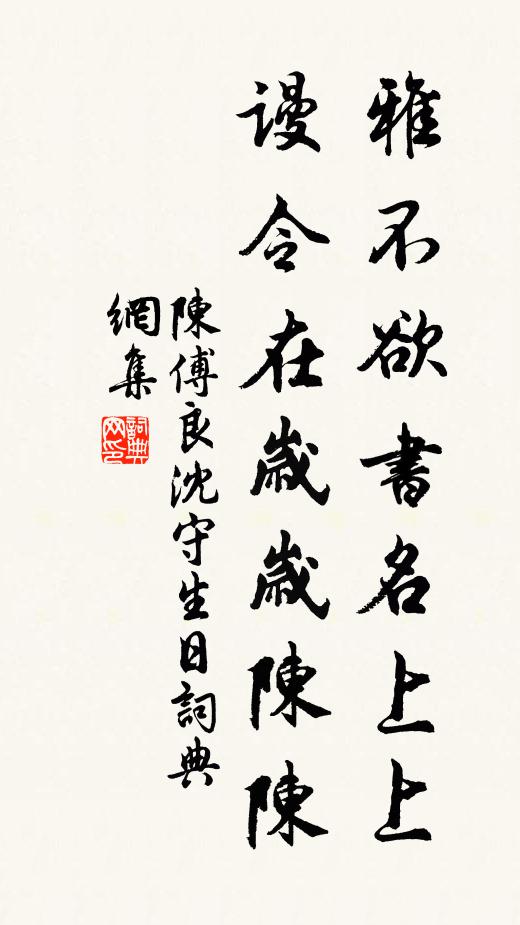 雅不欲書名上上
谩令在歲歲陳陳
陳傅良沈守生日詞典
網集
詞典
网印